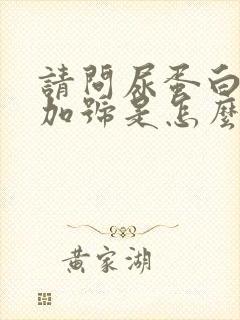 請問尿蛋白
加號是怎麼
黃家湖